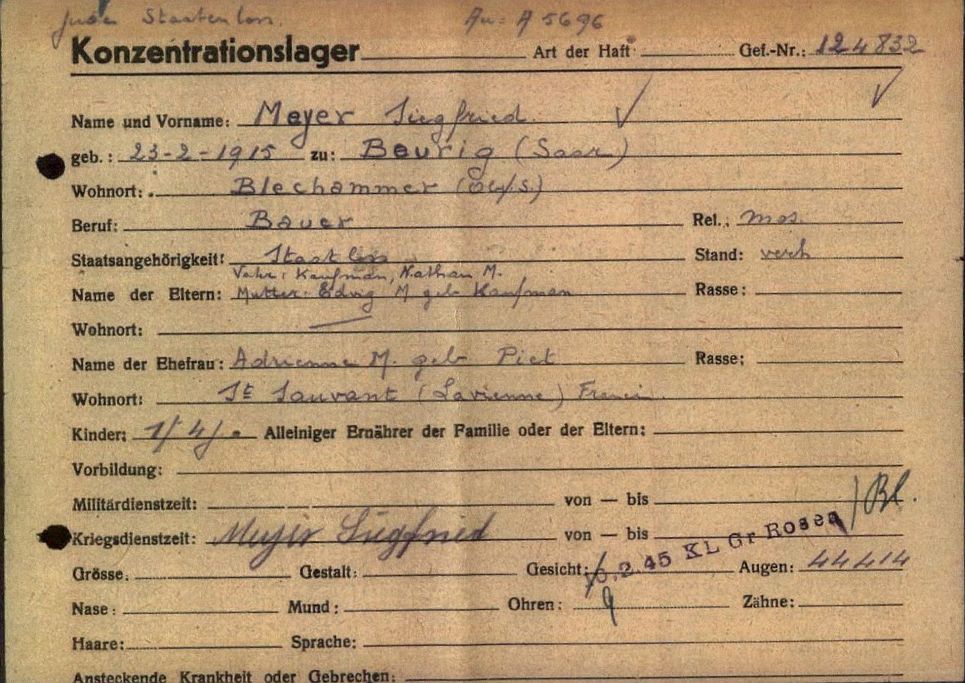 Jude Staatenlos. Au: A 5696
Konzentrationslager Art der Haft Gef.-Nr.: 124832
Name und Vorname: Meyer Siegfried.
geb.: 23-2-1915 zu: Beurig (Saar)
Wohnort: Blechammer (O/S.)
Beruf: Bauer Rel.: mos.
Staatsangehörigkeit: Staatlos Stand: verh
Vater: Kaufman, Nathan M.
Name der Eltern: Mutter: Edvig M geb Kaufman Rasse:
Wohnort:
Name der Ehefrau: Adrienne M. geb Piet Rasse:
Wohnort: St Sauvant (Lavienne)
Kinder: 1/4j. Alleiniger Ernährer der Familie oder der Eltern:
Vorbildung:
Militärdienstzeit: von — bis Bl.
Kriegsdienstzeit: Meyer Siegfried von — bis
Grösse: Gestalt: Gesicht: 10.2.45 KL Gr Rosen Augen: 44414
9
Nase: Mund: Ohren: Zähne:
Haare: Sprache:
Ansteckende Krankheit oder Gebrechen: